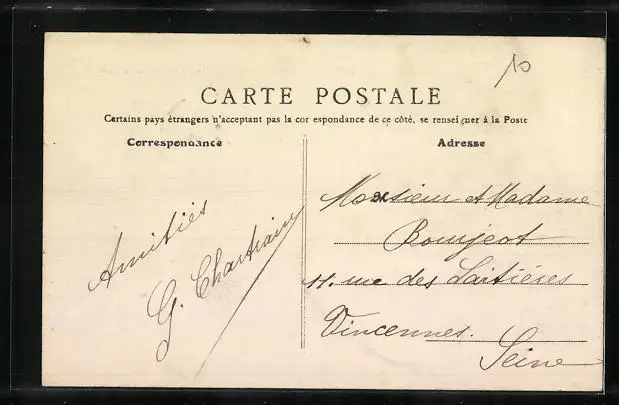 10
CARTE POSTALE
Certains pays étrangers n'acceptant pas la cor espondance de ce côté, se renseigner à la Poste
Correspondance
Adresse
Amitiés
G. Chartrain
Monsieur et Madame
Bourgeot
11. rue des Laitières
Vincennes.
Seine